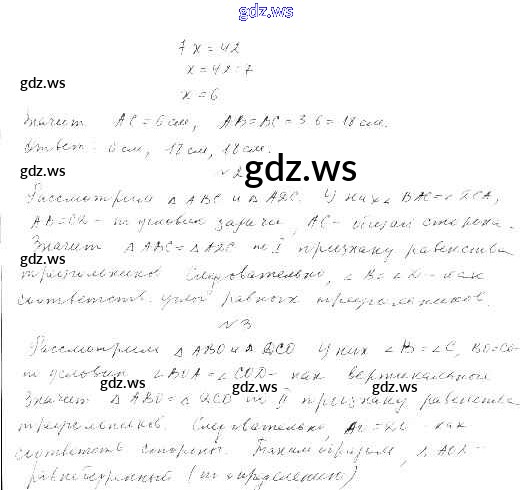 gdz.ws
7x=42
x=42:7
gdz.ws
x=6
Значит AC=6см, AB=BC=3·6=18см.
Ответ: 6см, 18см, 18см.
gdz.ws
gdz.ws
№2
Рассмотрим △ABC и △ADC. У них ∠BAC=∠DCA,
AB=CD - по условию задачи, AC - общая сторона.
Значит △ABC=△ADC по I признаку равенства
gdz.ws
треугольников. Следовательно, ∠B=∠D - как
соответств. углы равных треугольников.
№3
Рассмотрим △ABO и △DCO. У них ∠B=∠C, BO=CO-
по условию ∠BOA=∠COD - как вертикальные
gdz.ws gdz.ws gdz.ws
Значит △ABO=△DCO по II признаку равенства
треугольников. Следовательно, как
соответств. стороны. Таким образом, △AOD-
равнобедренный (по определению)